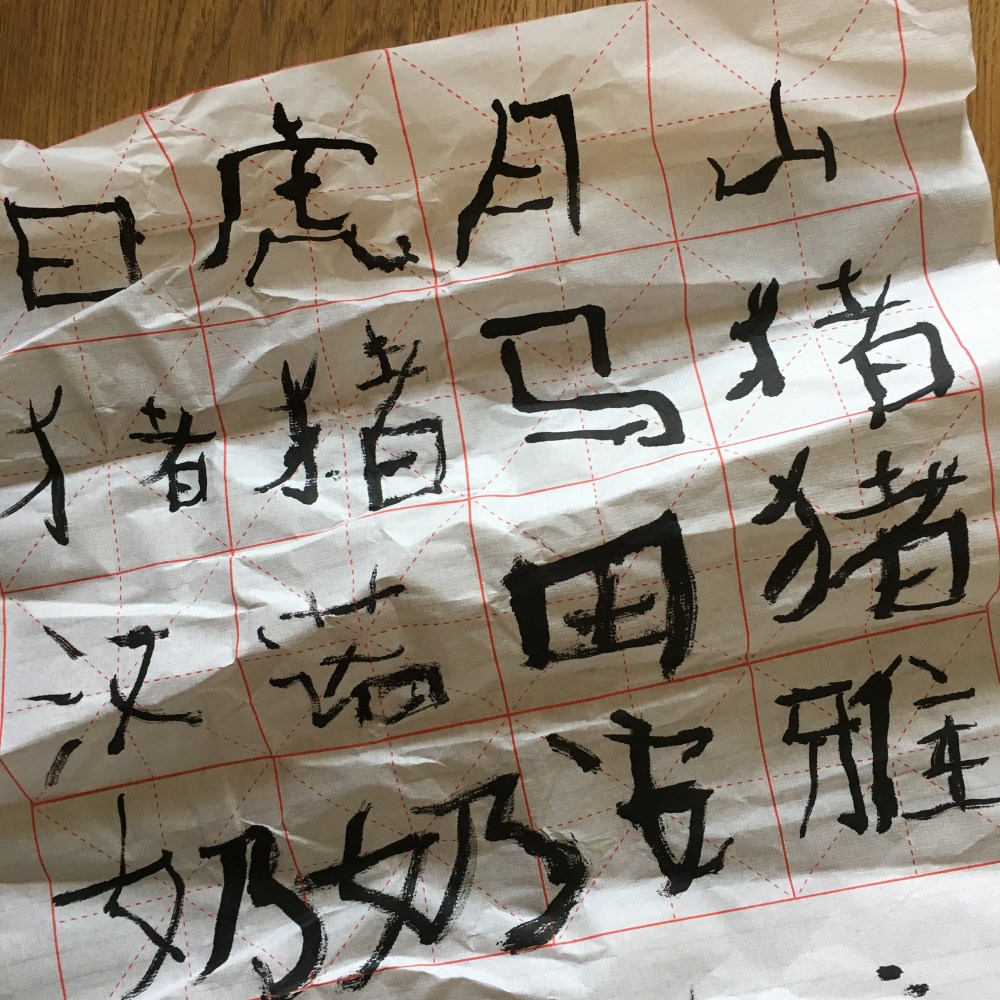 日虎月山
猪猪马猪
汉诺田猪
奶奶安雅